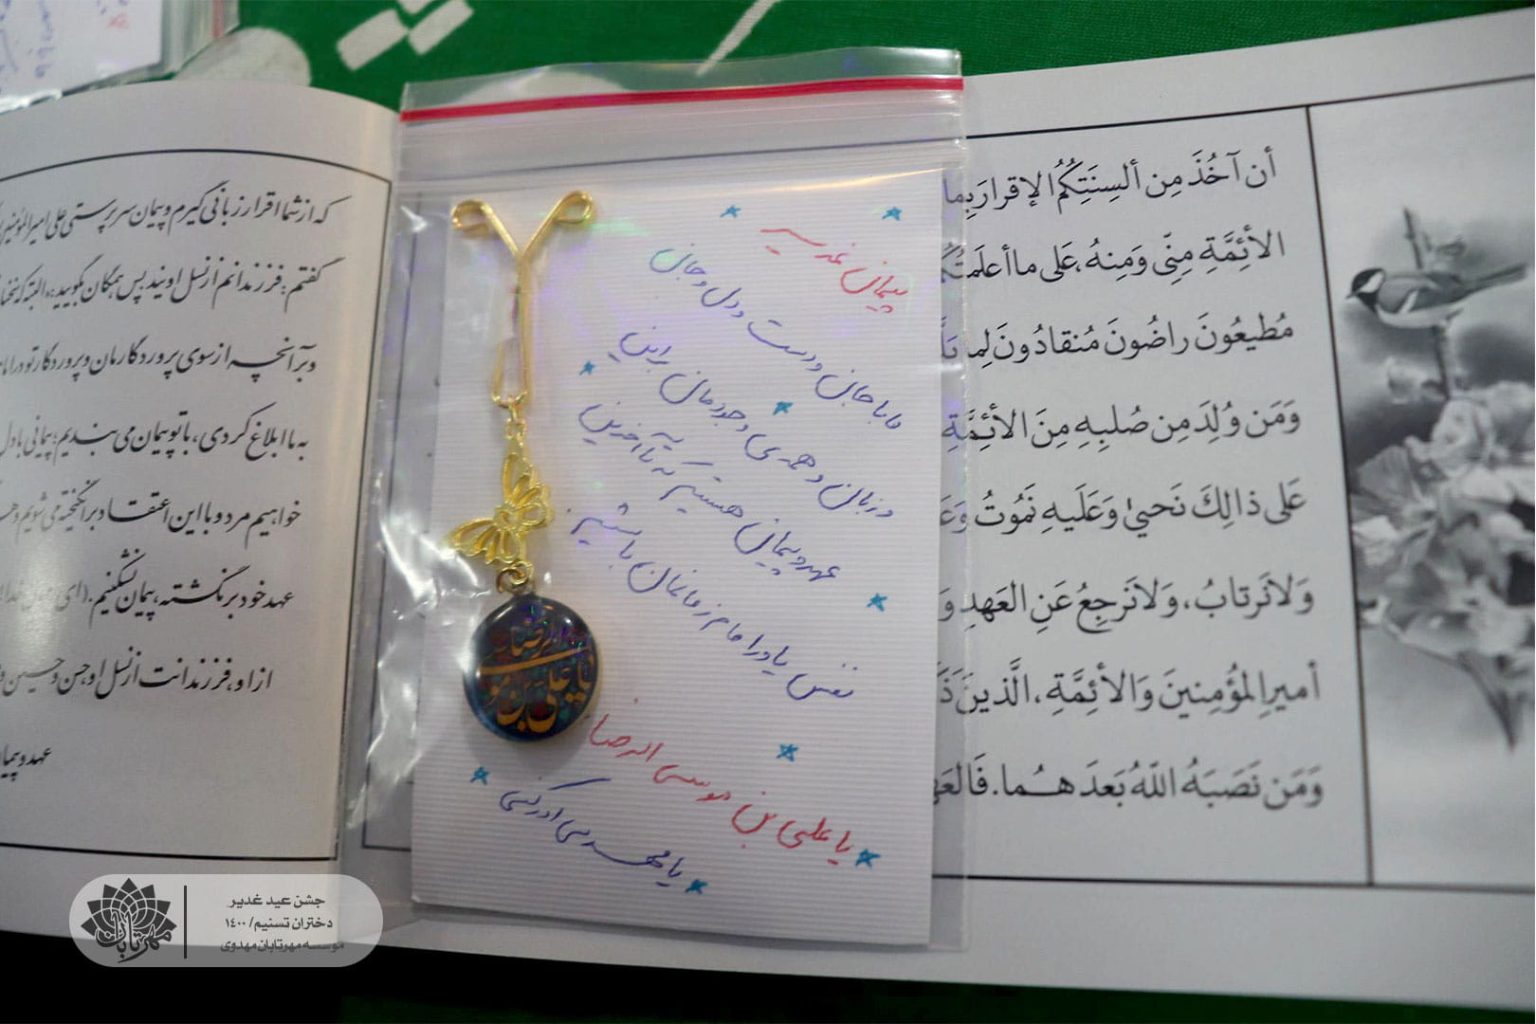 أن آخُذَ مِن ألسِنَتِكُمُ الإقرارَ بِما
الأئِمَّةِ مِنّي وَمِنهُ، عَلى ما أعلَمتُكُ
مُطيعُونَ راضُونَ مُنقادُونَ لِما بَلَّ
وَمَن وُلِدَ مِن صُلبِهِ مِنَ الأئِمَّةِ
عَلى ذالِكَ نَحيىٰ وَعَلَيهِ نَمُوتُ وَعَ
وَلانَرتابُ، وَلانَرجِعُ عَنِ العَهدِ وَ
أميرِالمؤُمِنينَ وَالأئِمَّةِ، الَّذينَ ذَكَ
وَمَن نَصَبَهُ اللّهُ بَعدَ هُما. فَالعَه
پیمان غدیر
ما با جان و دست و دل و جان
و زبان و همه ی وجودمان براین
عهد و پیمان هستیم که تا آخرین
نفس یاور امام زمانمان باشیم.
یا علی بن موسی الرضا
یا مهدی ادرکنی
یا علی بن موسی الرضا
که از شما اقرار زبانی گیرم و پیمان سرپرستی علی امیرالمؤمنین
گفتم: فرزندانم از نسل اویند پس همگان بگویید: «البته که سخنا
و بر آنچه از سوی پروردگارمان و پروردگار تو درا
به ما ابلاغ کردی، با تو پیمان می بندیم؛ پیمانی با دل
خواهیم مرد و با این اعتقاد برانگیخته می شویم و
عهد خود برنگشته، پیمان نشکنیم. (ای
از او، فرزندانت از نسل او، حسن و حسین و
عهد و پیما
مهرتابان
جشن عید غدیر
دختران تسنیم/ ۱۴۰۰
موسسه مهرتابان مهدوی